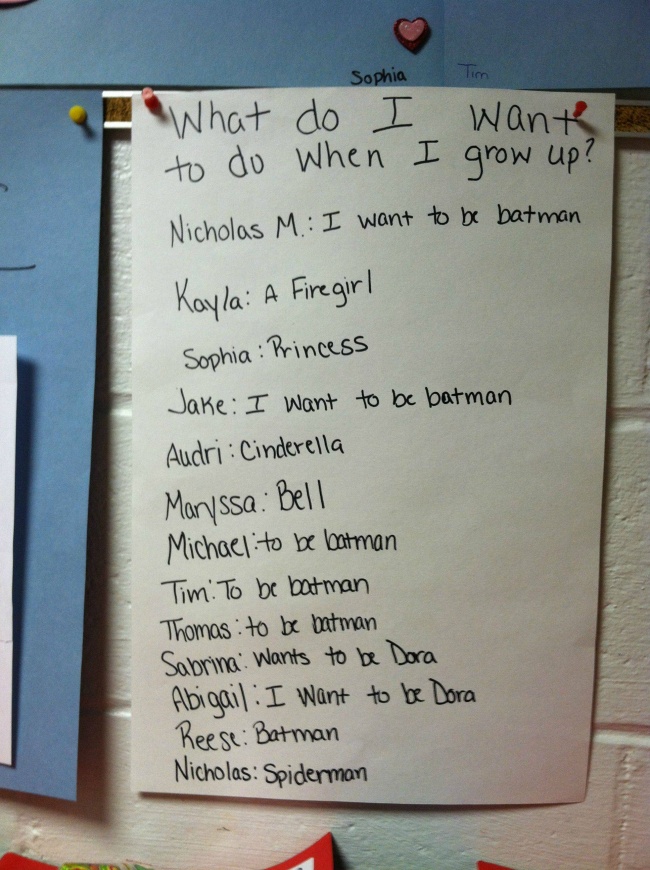 Sophia Tim
What do I want
to do when I grow up?
Nicholas M.: I want to be batman
Kayla: A Firegirl
Sophia: Princess
Jake: I want to be batman
Audri: Cinderella
Maryssa: Bell
Michael: to be batman
Tim: To be batman
Thomas: to be batman
Sabrina: wants to be Dora
Abigail: I want to be Dora
Reese: Batman
Nicholas: Spiderman